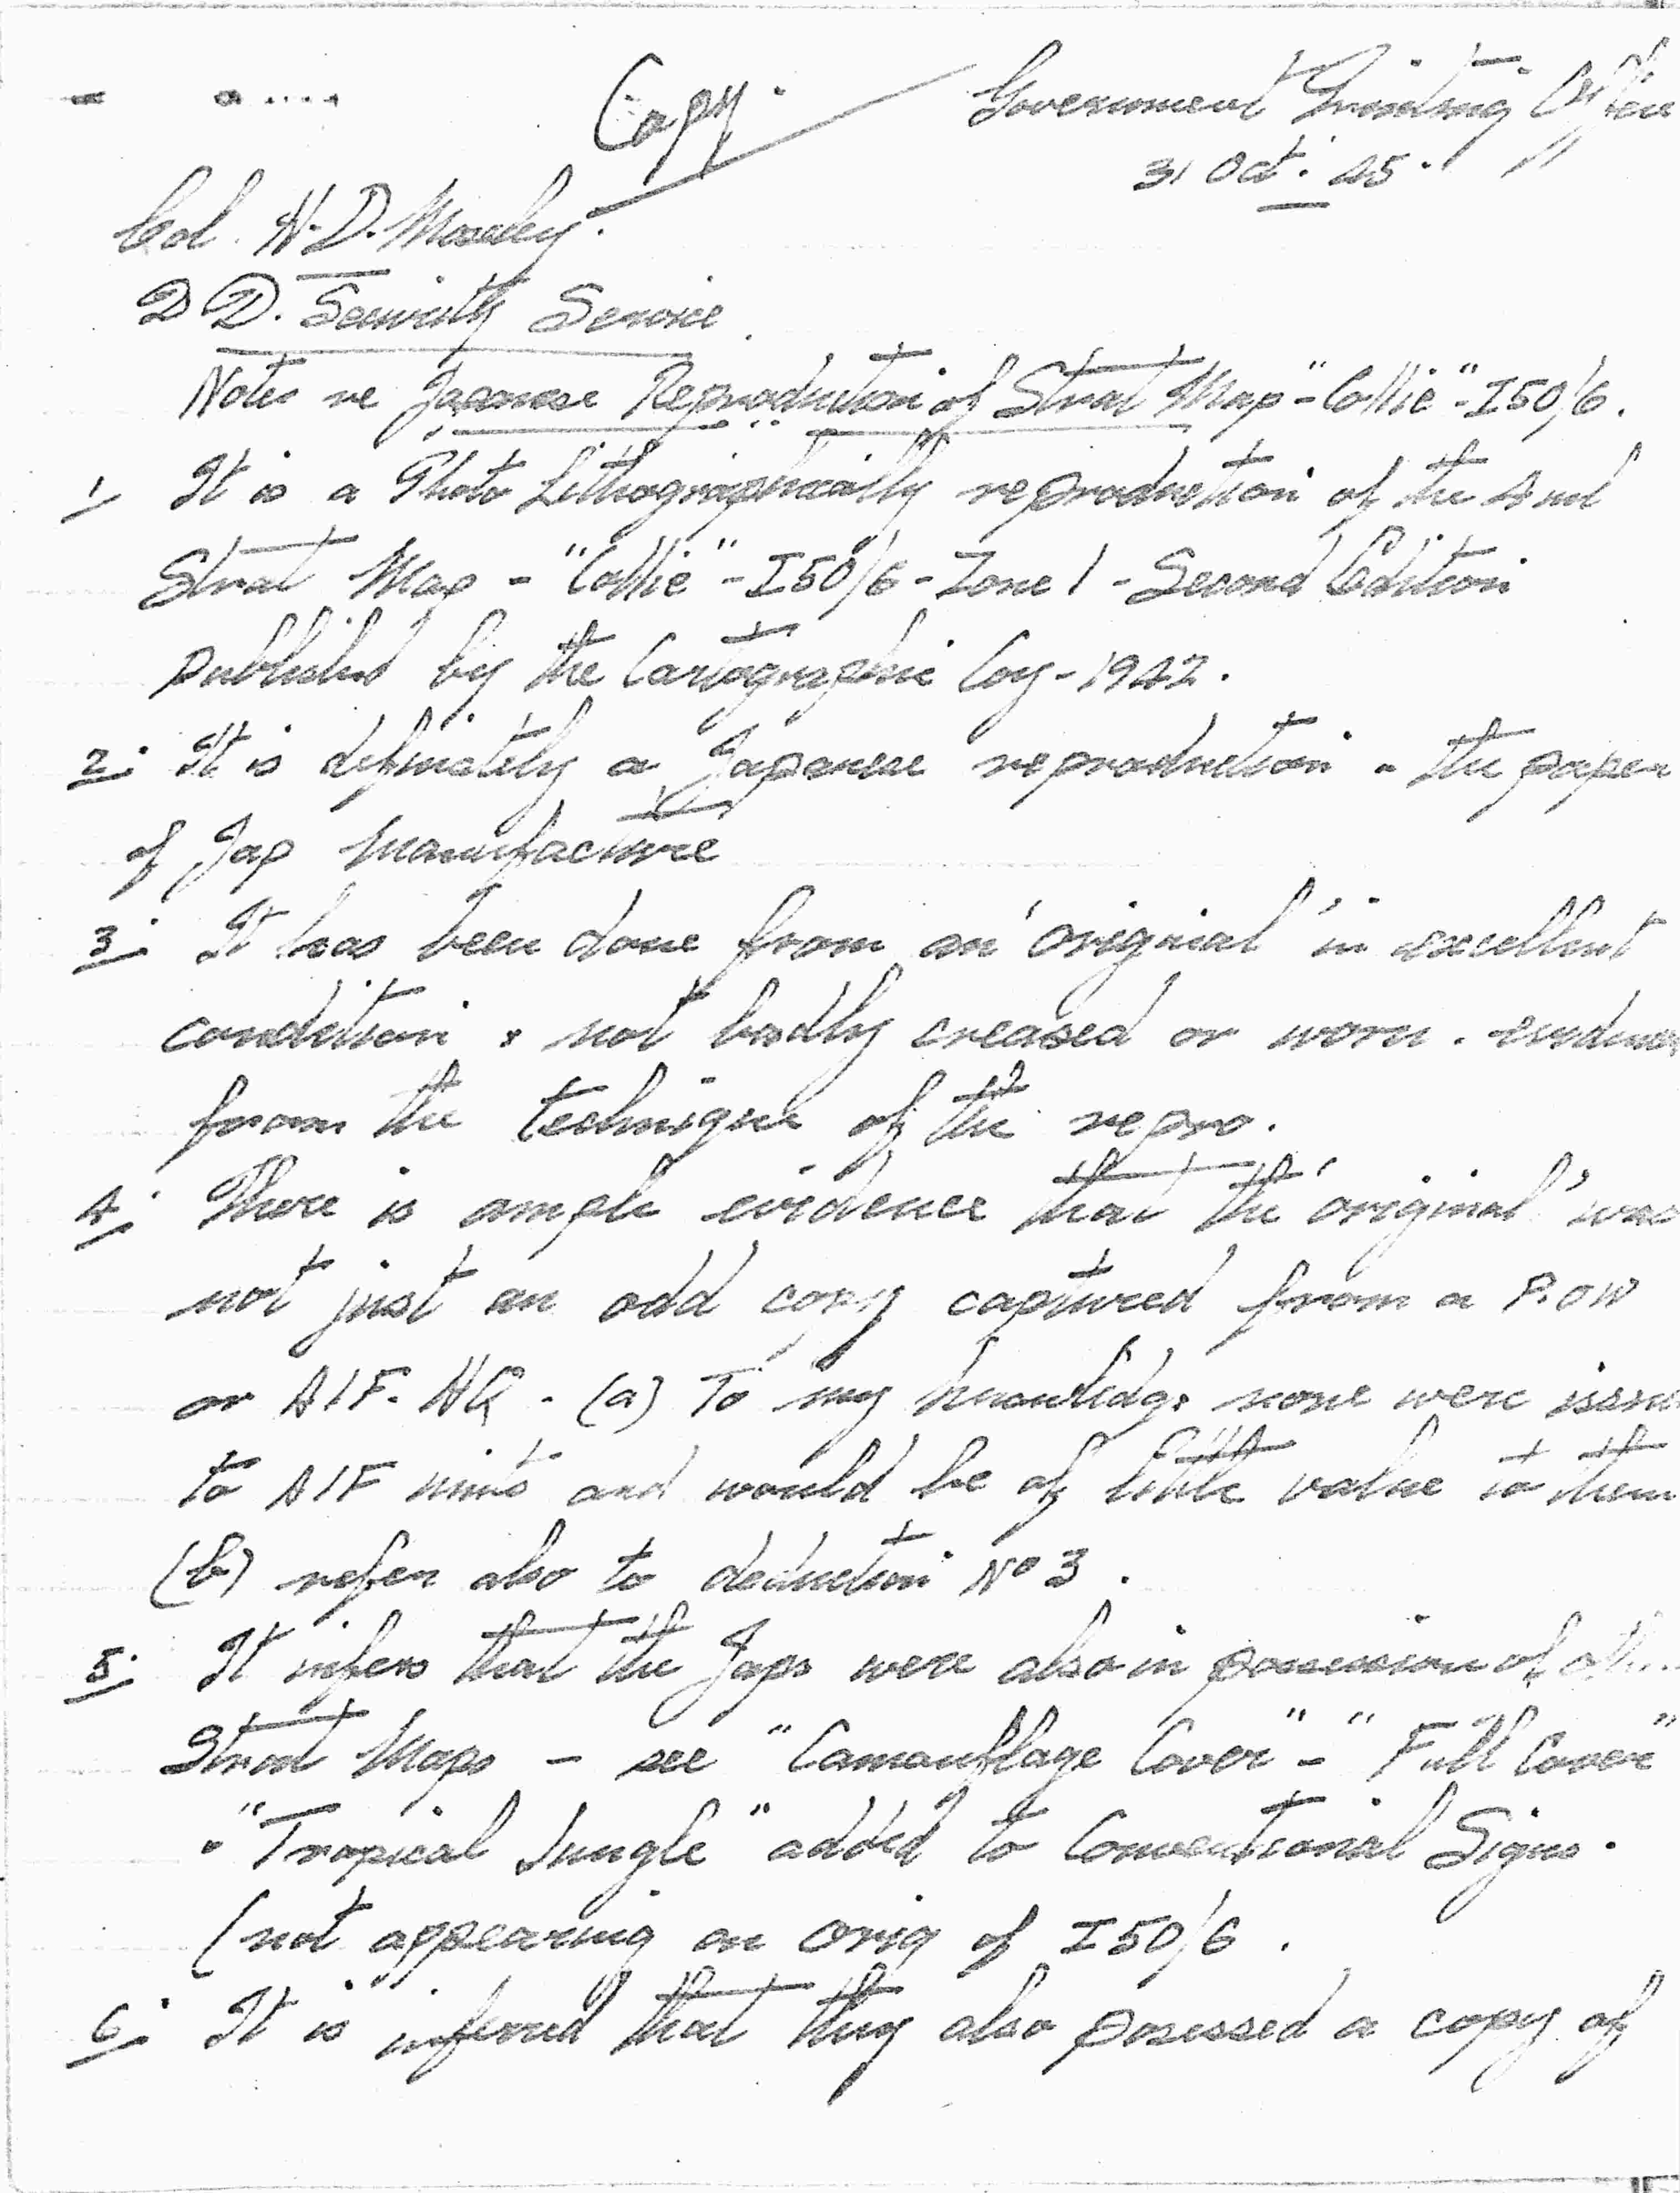 Copy.
Government Printing Office
31 Oct. 45.
Col. H.D. Moseley.
D.D. Security Service
Notes re Japanese Reproduction of Strat Map - "Collie" - I50/6.
1 It is a Photo Lithographically reproduction of the 4 ml
Strat Map - "Collie" - I50/6 - Zone 1 - Second Edition
published by the Cartographic Coy - 1942.
2. It is definitely a Japanese reproduction - the paper
of Jap manufacture
3. It has been done from an 'original' in excellent
condition & not badly creased or worn - evidence
from the technique of the repro.
4. There is ample evidence that the 'original' was
not just an odd copy captured from a P.O.W
or AIF. HQ - (a) To my knowledge none were issued
to AIF units and would be of little value to them
(b) refer also to deduction No 3.
5. It infers that the Japs were also in possession of
Strat Maps - see "Camouflage Cover" - "Full Cover"
"Tropical Jungle" added to Conventional Signs.
(not appearing on orig of I50/6.
6. It is inferred that they also posessed a copy of